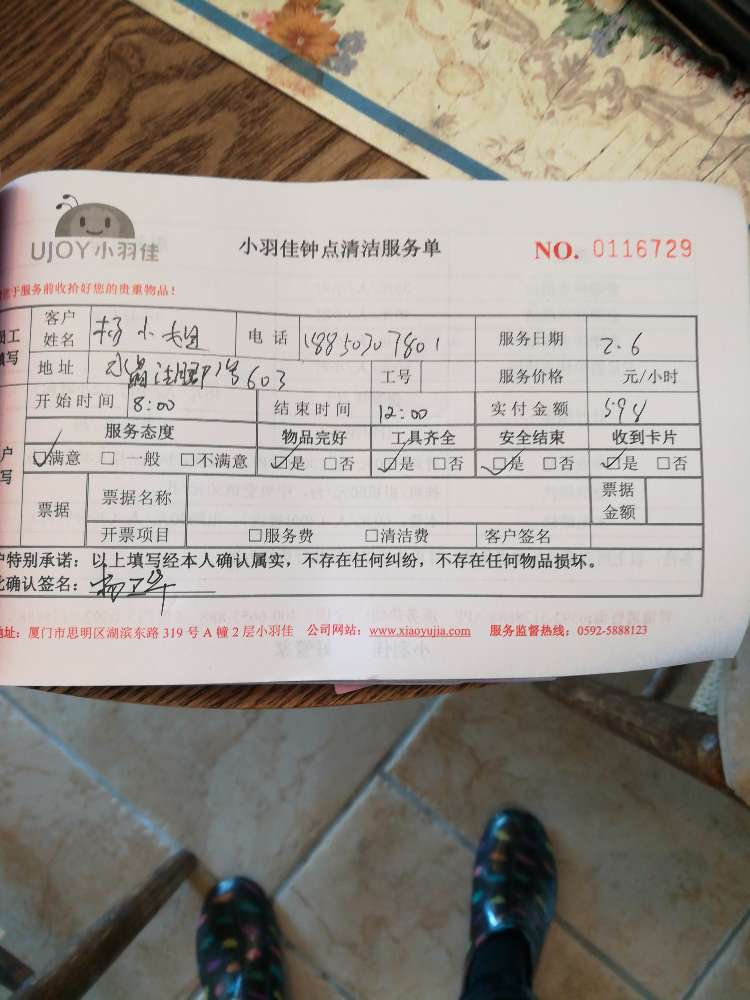 UJOY小羽佳
小羽佳钟点清洁服务单
NO. 0116729
于服务前收拾好您的贵重物品!
员工填写
客户姓名 杨小姐 电话 18850307801 服务日期 2.6
地址 号603 工号 服务价格 元/小时
开始时间 8:00 结束时间 12:00 实付金额
服务态度 物品完好 工具齐全 安全结束 收到卡片
户写
☑满意 □一般 □不满意 ☑是 □否 ☑是 □否 ☑是 □否 ☑是 □否
票据 票据名称 票据金额
开票项目 □服务费 □清洁费 客户签名
户特别承诺:以上填写经本人确认属实,不存在任何纠纷,不存在任何物品损坏。
此确认签名:
地址:厦门市思明区湖滨东路 319 号 A 幢 2 层小羽佳 公司网站:www.xiaoyujia.com 服务监督热线:0592-5888123